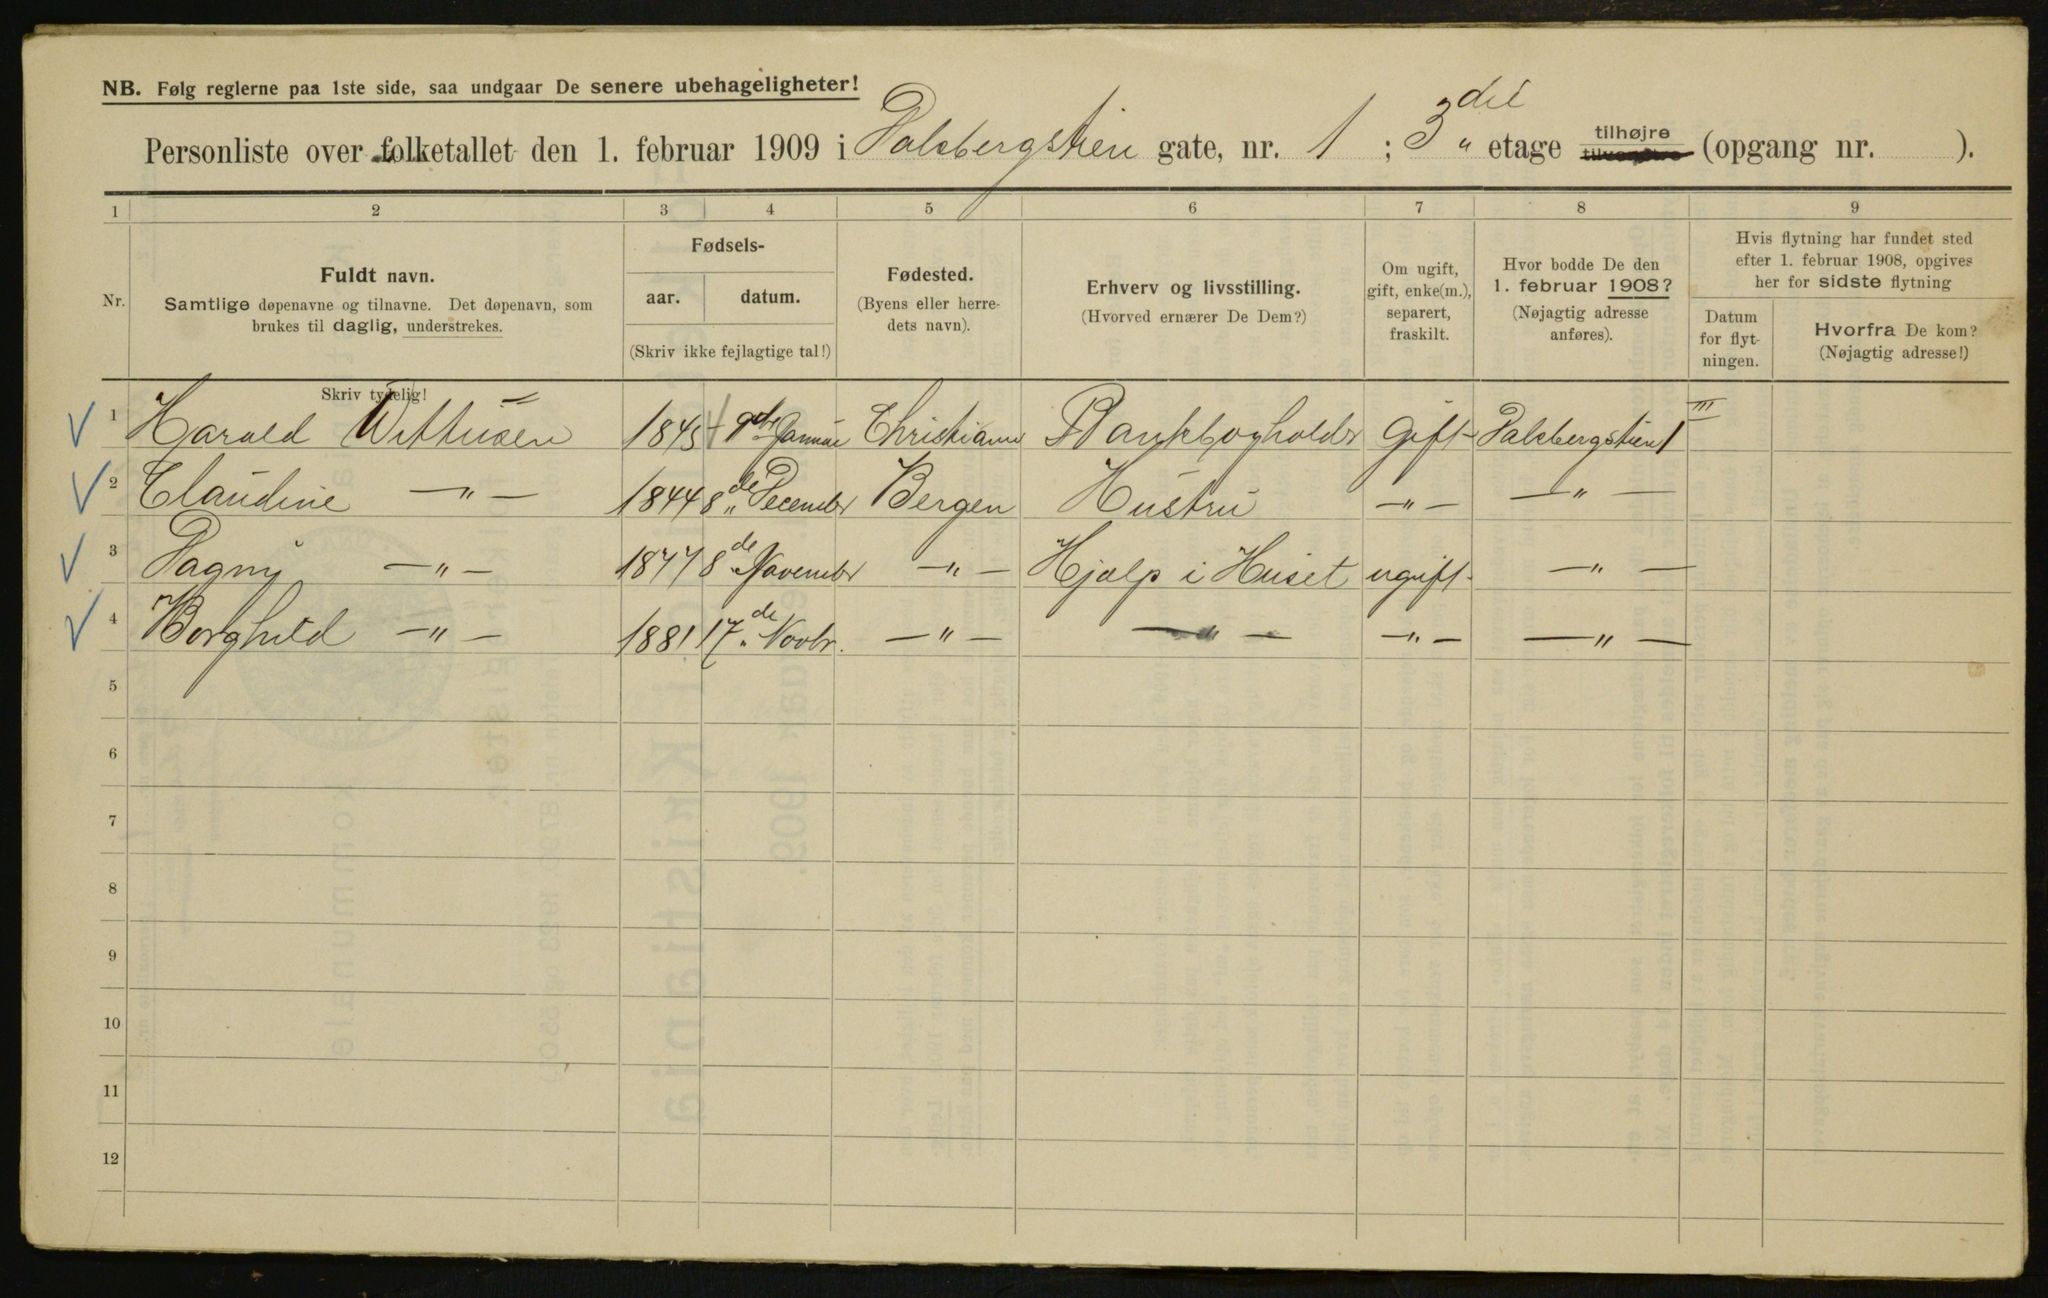 NB. Følg reglerne paa 1ste side, saa undgaar De senere ubehageligheter!
Personliste over folketallet den 1. februar 1909 i Dalsbergstien gate, nr. 1 ; 3die etage tilhøjre tilvenstre (opgang nr. ).
1 2 3 4 5 6 7 8 9
Nr.
Fuldt navn.
Samtlige døpenavne og tilnavne. Det døpenavn, som
brukes til daglig, understrekes.
Skriv tydelig!
Fødsels-
aar. datum.
(Skriv ikke fejlagtige tal!)
Fødested.
(Byens eller herre-
dets navn).
Erhverv og livsstilling.
(Hvorved ernærer De Dem?)
Om ugift,
gift, enke(m.),
separert,
fraskilt.
Hvor bodde De den
1. februar 1908?
(Nøjagtig adresse
anføres).
Hvis flytning har fundet sted
efter 1. februar 1908, opgives
her for sidste flytning
Datum
for flyt-
ningen.
Hvorfra De kom?
(Nøjagtig adresse!)
1 Harald Witthusen 1845 Januar Bankbogholder Gift Dalsbergstien 1 III
2 Claudine —"— 1844 8de December Bergen Hustru —"— —"—
3 Dagny —"— 1877 8de November —"— Hjælp i Huset ugift —"—
4 Borghild —"— 1881 17de Novbr. —"— —"— —"— —"—
5
6
7
8
9
10
11
12